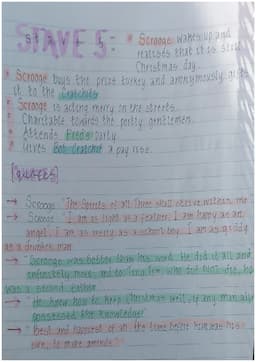 STAVE 5:
* Scrooge wakes up and
realises that it is still
Christmas day.
* Scrooge buys the prize turkey and anonymously gives
it to the Cratchits
* Scrooge is acting merry on the streets.
* Charitable towards the portly gentlemen.
* Attends Fred's party
* Gives Bob Cratchit a pay rise.
[QUOTES]
→ Scrooge "The Spirits of all Three shall strive within me
→ Scrooge "I am as light as a feather, I am happy as an
angel, I am as merry as a school boy. I am as giddy
as a drunken man
→ "Scrooge was better than his word. He did it all and
infinitely more, and to Tiny Tim, who did NOT die, he
was a second father
→ "He knew how to keep Christmas well, if any man alive
possessed the knowledge"
→ "Best and happiest of all, the time before him was his
own, to make amends